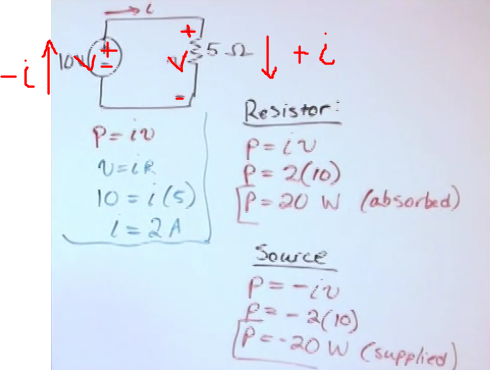 i
-i 10V + - + V - 5 Ω + i
P = iv
v = iR
10 = i(5)
i = 2A
Resistor:
P = iv
P = 2(10)
P = 20 W (absorbed)
Source
P = -iv
P = -2(10)
P = -20 W (supplied)